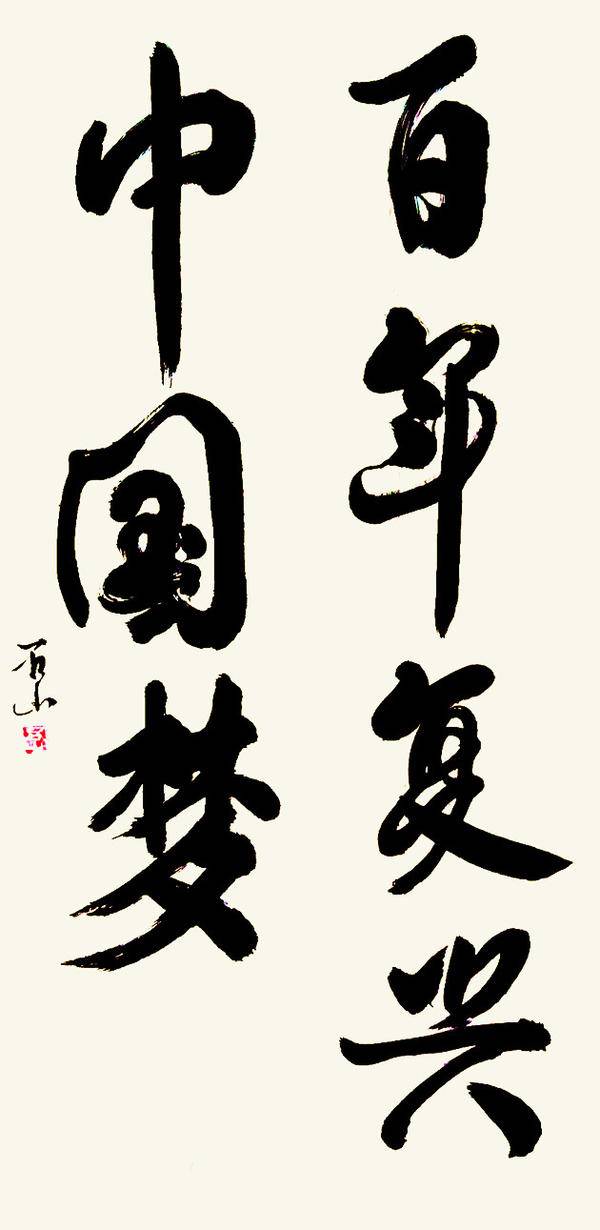 百年复兴
中国梦
石山